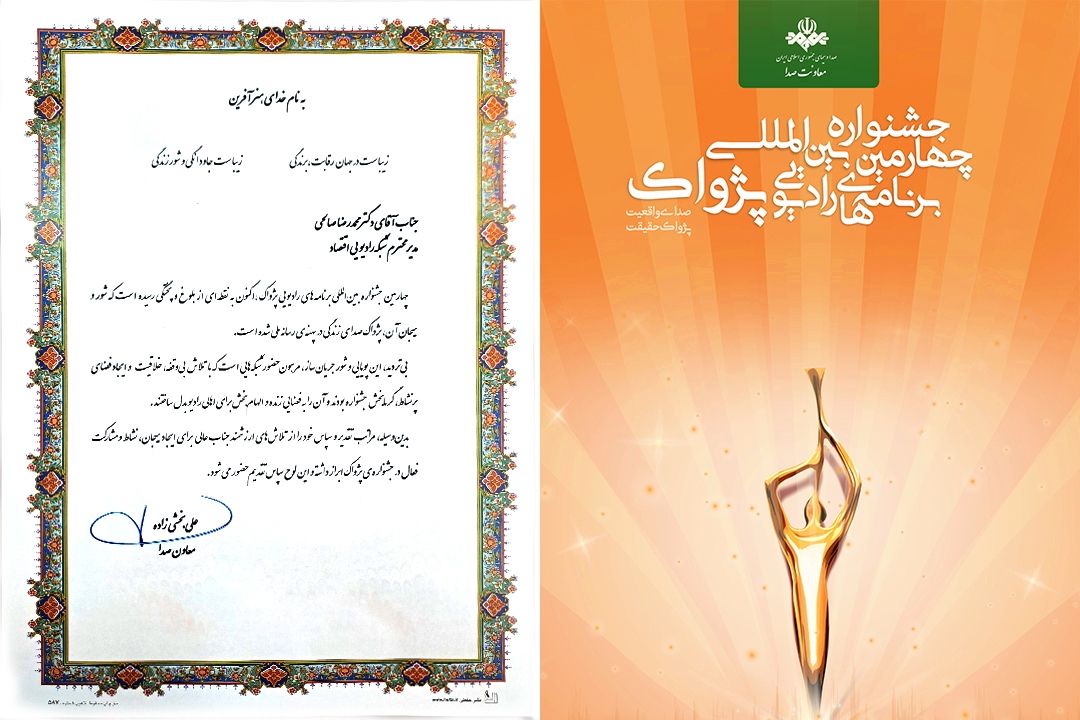 به نام خدای هنرآفرین
زیباست در جهان رقابت، برندگی زیباست جاودانگی و شور زندگی
جناب آقای دکتر محمدرضا صالحی
مدیر محترم شبکه رادیویی اقتصاد
چهارمین جشنواره بین‌المللی برنامه‌های رادیویی پژواک، اکنون به نقطه‌ای از بلوغ و پختگی رسیده است که شور و
هیجان آن، پژواک صدای زندگی در پهنه‌ی رسانه ملی شده است.
بی‌تردید، این پویایی و شور جریان‌ساز، مرهون حضور شبکه‌هایی است که با تلاش بی‌وقفه، خلاقیت و ایجاد فضای
پرنشاط، گرمابخش جشنواره بودند و آن را به فضایی زنده و الهام‌بخش برای اهالی رادیو بدل ساختند.
بدین‌وسیله، مراتب تقدیر و سپاس خود را از تلاش‌های ارزشمند جناب عالی برای ایجاد هیجان، نشاط و مشارکت
فعال در جشنواره‌ی پژواک ابراز داشته و این لوح سپاس تقدیم حضور می شود.
علی بخشی زاده
معاون صدا
۵۸۷
صدا و سیمای جمهوری اسلامی ایران
معاونت صدا
جشنواره
چهارمین بین‌المللی
برنامه‌های رادیویی پژواک
صدای واقعیت
پژواک حقیقت